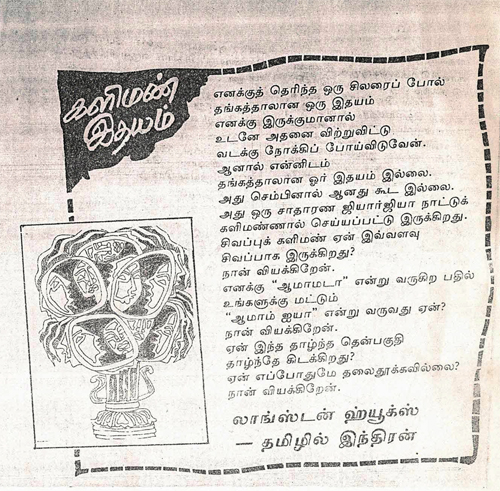 களிமண்
இதயம்
எனக்குத் தெரிந்த ஒரு சிலரைப் போல்
தங்கத்தாலான ஒரு இதயம்
எனக்கு இருக்குமானால்
உடனே அதனை விற்றுவிட்டு
வடக்கு நோக்கிப் போய்விடுவேன்.
ஆனால் என்னிடம்
தங்கத்தாலான ஓர் இதயம் இல்லை.
அது செம்பினால் ஆனது கூட இல்லை.
அது ஒரு சாதாரண ஜியார்ஜியா நாட்டுக்
களிமண்ணால் செய்யப்பட்டு இருக்கிறது.
சிவப்புக் களிமண் ஏன் இவ்வளவு
சிவப்பாக இருக்கிறது?
நான் வியக்கிறேன்.
எனக்கு “ஆமாமடா” என்று வருகிற பதில்
உங்களுக்கு மட்டும்
“ஆமாம் ஐயா” என்று வருவது ஏன்?
நான் வியக்கிறேன்.
ஏன் இந்த தாழ்ந்த தென்பகுதி
தாழ்ந்தே கிடக்கிறது?
ஏன் எப்போதுமே தலைதூக்கவில்லை?
நான் வியக்கிறேன்.
லாங்ஸ்டன் ஹ்யூக்ஸ்
— தமிழில் இந்திரன்